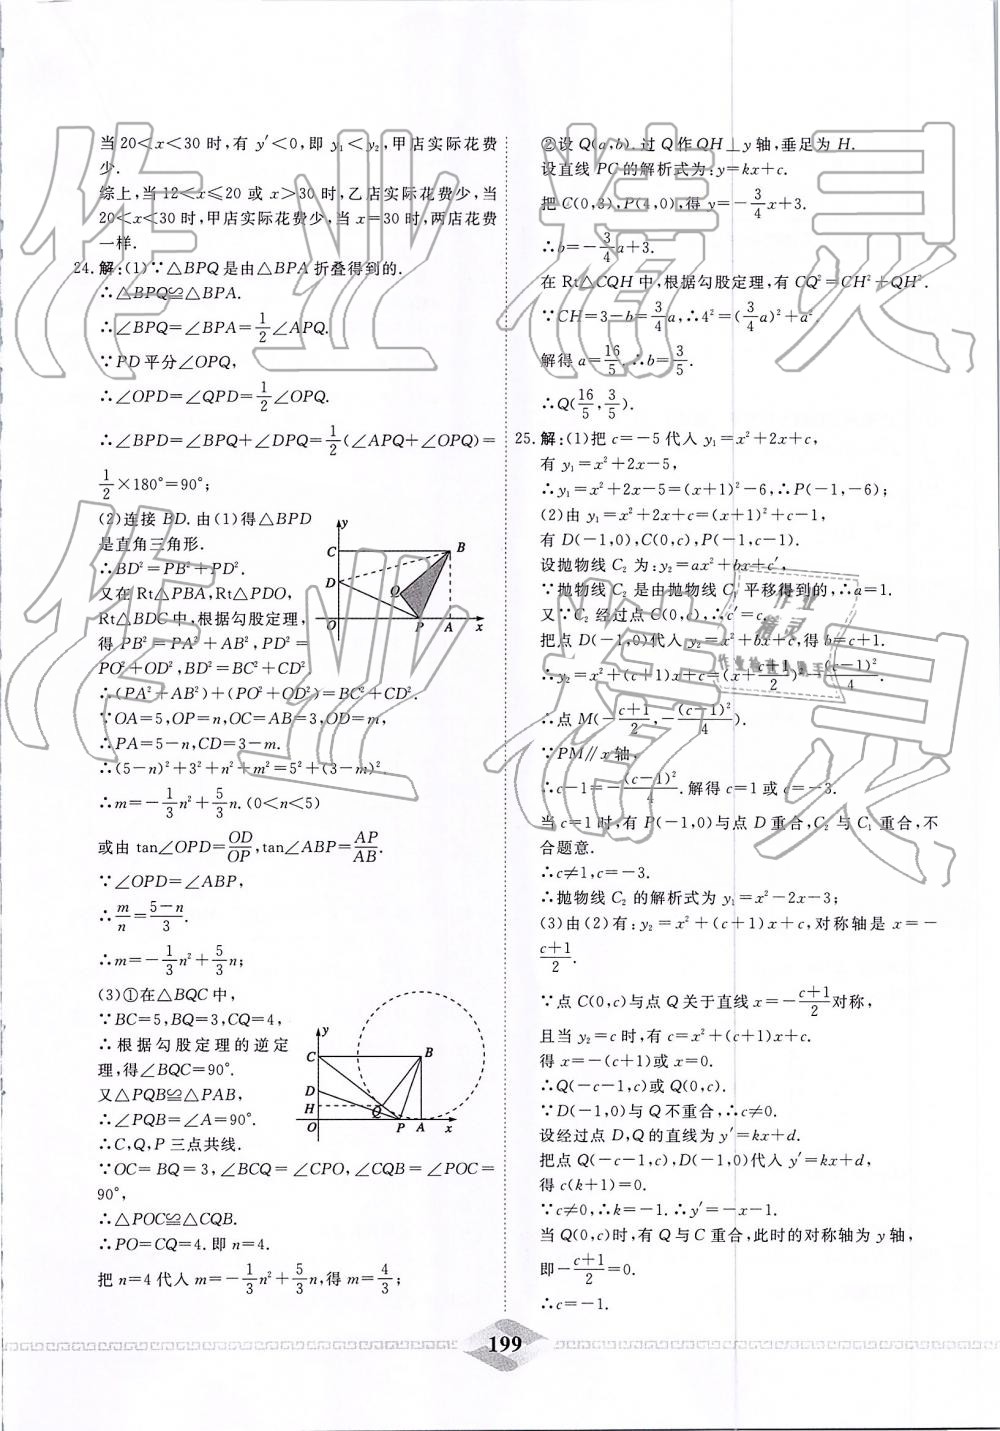 当20<x<30时,有y′<0,即y₁<y₂,甲店实际花费
少.
综上,当12<x≤20或x>30时,乙店实际花费少,当
20<x<30时,甲店实际花费少,当x=30时,两店花费
一样.
24.解:(1)∵△BPQ是由△BPA折叠得到的.
∴△BPQ≌△BPA.
∴∠BPQ=∠BPA=1/2∠APQ.
∵PD平分∠OPQ,
∴∠OPD=∠QPD=1/2∠OPQ.
∴∠BPD=∠BPQ+∠DPQ=1/2(∠APQ+∠OPQ)=
1/2×180°=90°;
(2)连接BD.由(1)得△BPD
是直角三角形.
∴BD²=PB²+PD².
又在Rt△PBA,Rt△PDO,
Rt△BDC中,根据勾股定理,
得PB²=PA²+AB²,PD²=
PO²+OD²,BD²=BC²+CD²
∴(PA²+AB²)+(PO²+OD²)=BC²+CD².
∵OA=5,OP=n,OC=AB=3,OD=m,
∴PA=5-n,CD=3-m.
∴(5-n)²+3²+n²+m²=5²+(3-m)².
∴m=-1/3n²+5/3n.(0<n<5)
或由tan∠OPD=OD/OP,tan∠ABP=AP/AB.
∵∠OPD=∠ABP,
∴m/n=(5-n)/3.
∴m=-1/3n²+5/3n;
(3)①在△BQC中,
∵BC=5,BQ=3,CQ=4,
∴根据勾股定理的逆定
理,得∠BQC=90°.
又△PQB≌△PAB,
∴∠PQB=∠A=90°.
∴C,Q,P三点共线.
∵OC=BQ=3,∠BCQ=∠CPO,∠CQB=∠POC=
90°,
∴△POC≌△CQB.
∴PO=CQ=4.即n=4.
把n=4代入m=-1/3n²+5/3n,得m=4/3;
y
C
B
D
Q
O
P
A
x
y
C
B
D
H
Q
O
P
A
x
②设Q(a,b).过Q作QH⊥y轴,垂足为H.
设直线PC的解析式为:y=kx+c.
把C(0,3),P(4,0),得y=-3/4x+3.
∴b=-3/4a+3.
在Rt△CQH中,根据勾股定理,有CQ²=CH²+QH².
∵CH=3-b=3/4a,∴4²=(3/4a)²+a².
解得a=16/5.∴b=3/5.
∴Q(16/5,3/5).
25.解:(1)把c=-5代入y₁=x²+2x+c,
有y₁=x²+2x-5,
∴y₁=x²+2x-5=(x+1)²-6,∴P(-1,-6);
(2)由y₁=x²+2x+c=(x+1)²+c-1,
有D(-1,0),C(0,c),P(-1,c-1).
设抛物线C₂为:y₂=ax²+bx+c′,
∵抛物线C₂是由抛物线C₁平移得到的,∴a=1.
又∵C₂经过点C(0,c),∴c′=c.
把点D(-1,0)代入y₂=x²+bx+c,得b=c+1.
∴y₂=x²+(c+1)x+c=(x+(c+1)/2)²-(c-1)²/4.
∴点M(-(c+1)/2,-(c-1)²/4).
∵PM∥x轴,
∴c-1=-(c-1)²/4.解得c=1或c=-3.
当c=1时,有P(-1,0)与点D重合,C₂与C₁重合,不
合题意.
∴c≠1,c=-3.
∴抛物线C₂的解析式为y₁=x²-2x-3;
(3)由(2)有:y₂=x²+(c+1)x+c,对称轴是x=-
(c+1)/2.
∵点C(0,c)与点Q关于直线x=-(c+1)/2对称,
且当y₂=c时,有c=x²+(c+1)x+c.
得x=-(c+1)或x=0.
∴Q(-c-1,c)或Q(0,c).
∵D(-1,0)与Q不重合,∴c≠0.
设经过点D,Q的直线为y′=kx+d.
把点Q(-c-1,c),D(-1,0)代入y′=kx+d,
得c(k+1)=0.
∵c≠0,∴k=-1.∴y′=-x-1.
当Q(0,c)时,有Q与C重合,此时的对称轴为y轴,
即-(c+1)/2=0.
∴c=-1.
199
作业精灵
作业精灵
作业
精灵